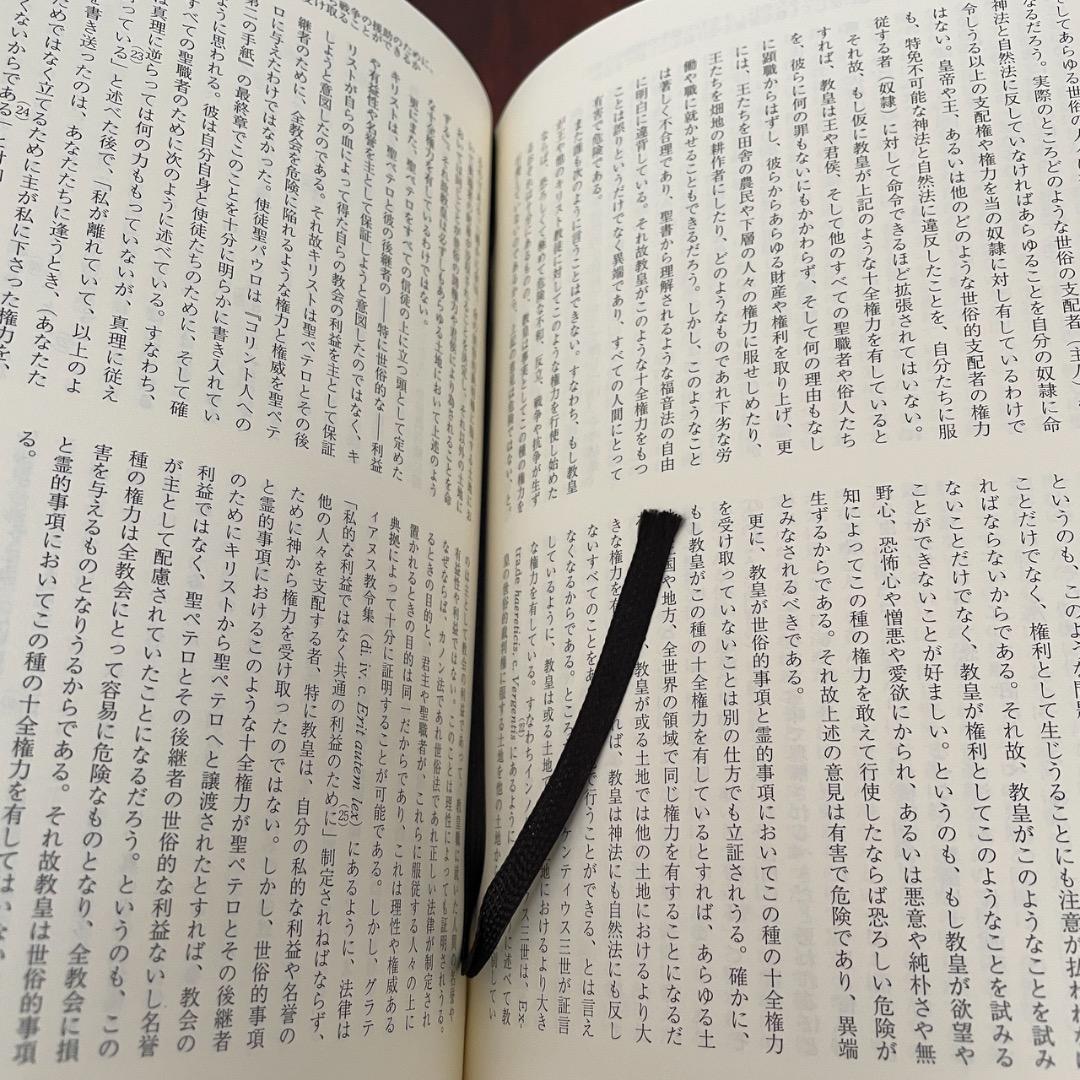 してあらゆる世俗の人
るだろう。実際のところどのような世俗的支
神法と自然法に反していなければあらゆることを自分の奴隷に命
令しうる以上の支配権や権力を当の奴隷に対し有しているわけで
はない。皇帝や王、あるいは他のどのような世俗的支配者の権力
も、特免不可能な神法と自然法に違反したことを、自分たちに服
従する者（奴隷）に対して命令できるほど拡張されてはいない。
それ故、もし仮に教皇が上記のような十全権力を有していると
すれば、教皇は王や君侯、そして他のすべての聖職者や俗人たち
を、彼らに何の罪もないにもかかわらず、そして何の理由もなし
に顕職からはずし、彼らからあらゆる財産や権利を取り上げ、更
には、王たちを田舎の農民や下層の人々の権力に服せしめたり、
王たちを畑地の耕作者にしたり、どのようなものであれ下劣な労
働や職に就かせることもできるだろう。しかし、このようなこと
は著しく不合理であり、聖書から理解されるような福音法の自由
に明白に違背している。それ故教皇がこのような十全権力をもつ
ことは誤りというだけでなく異端であり、すべての人間にとって
有害で危険である。
また誰も次のように言うことはできない。すなわち、もし教皇
が王や他のキリスト教徒に対してこのような権力を行使し始めた
ならば、恐ろしく極めて危険な不和、反乱、戦争や抗争が生ず
というのも、
ことだけでなく、権利として生じうることにも注意が払われ
ればならないからである。それ故、教皇がこのようなことを試み
ないことだけでなく、教皇が権利としてこのようなことを試みる
ことができないことが好ましい。というのも、もし教皇が欲望や
野心、恐怖心や憎悪や愛欲にかられ、あるいは悪意や純朴さや無
知によってこの種の権力を敢えて行使したならば恐ろしい危険が
生ずるからである。それ故上述の意見は有害で危険であり、異端
とみなされるべきである。
更に、教皇が世俗的事項と霊的事項においてこの種の十全権力
を受け取っていないことは別の仕方でも立証されうる。確かに、
もし教皇がこの種の十全権力を有しているとすれば、あらゆる土
国や地方、全世界の領域で同じ権力を有することになるだ
、教皇が或る土地では他の土地におけるより大
きな権力を有
れば、教皇は神法にも自然法にも反し
ないすべてのことをあ
で行うことができる、とは言え
なくなるからである。ところ
ケンティウス三世が証言
しているように、教皇は或る土地
地におけるより大き
な権力を有している。すなわちインノ
ス三世は、Ex-
tra de haereticis, c. Vergentis にあるように
に述べて教
皇の世俗的裁判権に服する土地を他の土地から
戦争の援助のため
受け取ることができる
する」。それ故教皇は必ずしもあらゆる土地において上述のよう
な十全権力を有しているわけではない。
更にまた、聖ペテロをすべての信徒の上に立つ頭として定めた
キリストは、聖ペテロと彼の後継者の――特に世俗的な――利益
や有益性や名誉を主として保証しようと意図したのではなく、キ
リストが自らの血によって得た自らの教会の利益を主として保証
しようと意図したのである。それ故キリストは聖ペテロとその後
継者のために、全教会を危険に陥れるような権力と権威を聖ペテ
ロに与えたわけではなかった。使徒聖パウロは『コリント人への
第二の手紙』の最終章でこのことを十分に明らかに書き入れてい
るように思われる。彼は自分自身と使徒たちのために、そして確
すべての聖職者のために次のように述べている。すなわち、
は真理に逆らっては何の力ももっていないが、真理に従え
っている」(23)と述べた後で、「私が離れていて、以上のよ
を書き送ったのは、あなたたちに逢うとき、（あなたた
ためではなく立てるために主が私に下さった権力を、
くないからである」(24)
のは主として教会の利益であって、教皇職に就いた人間の名誉や
有益性や利益ではない。このことは理性によっても証明されうる。
なぜならば、カノン法であれ世俗法であれ正しい法律が制定され
るときの目的と、君主や聖職者が、これらに服従する人々の上に
置かれるときの目的は同一だからであり、これは理性や権威ある
典拠によって十分に証明することが可能である。しかし、グラテ
ィアヌス教令集（di. iv. c. Erit autem lex）にあるように、法律は
「私的な利益ではなく共通の利益のために」(25)制定されねばならず、
他の人々を支配する者、特に教皇は、自分の私的な利益や名誉の
ために神から権力を受け取ったのではない。しかし、世俗的事項
と霊的事項におけるこのような十全権力が聖ペテロとその後継者
のためにキリストから聖ペテロへと譲渡されたとすれば、教会の
利益ではなく、聖ペテロとその後継者の世俗的な利益ないし名誉
が主として配慮されていたことになるだろう。というのも、この
種の権力は全教会にとって容易に危険なものとなり、全教会に損
害を与えるものとなりうるからである。それ故教皇は世俗的事項
と霊的事項においてこの種の十全権力を有してはいない
る。